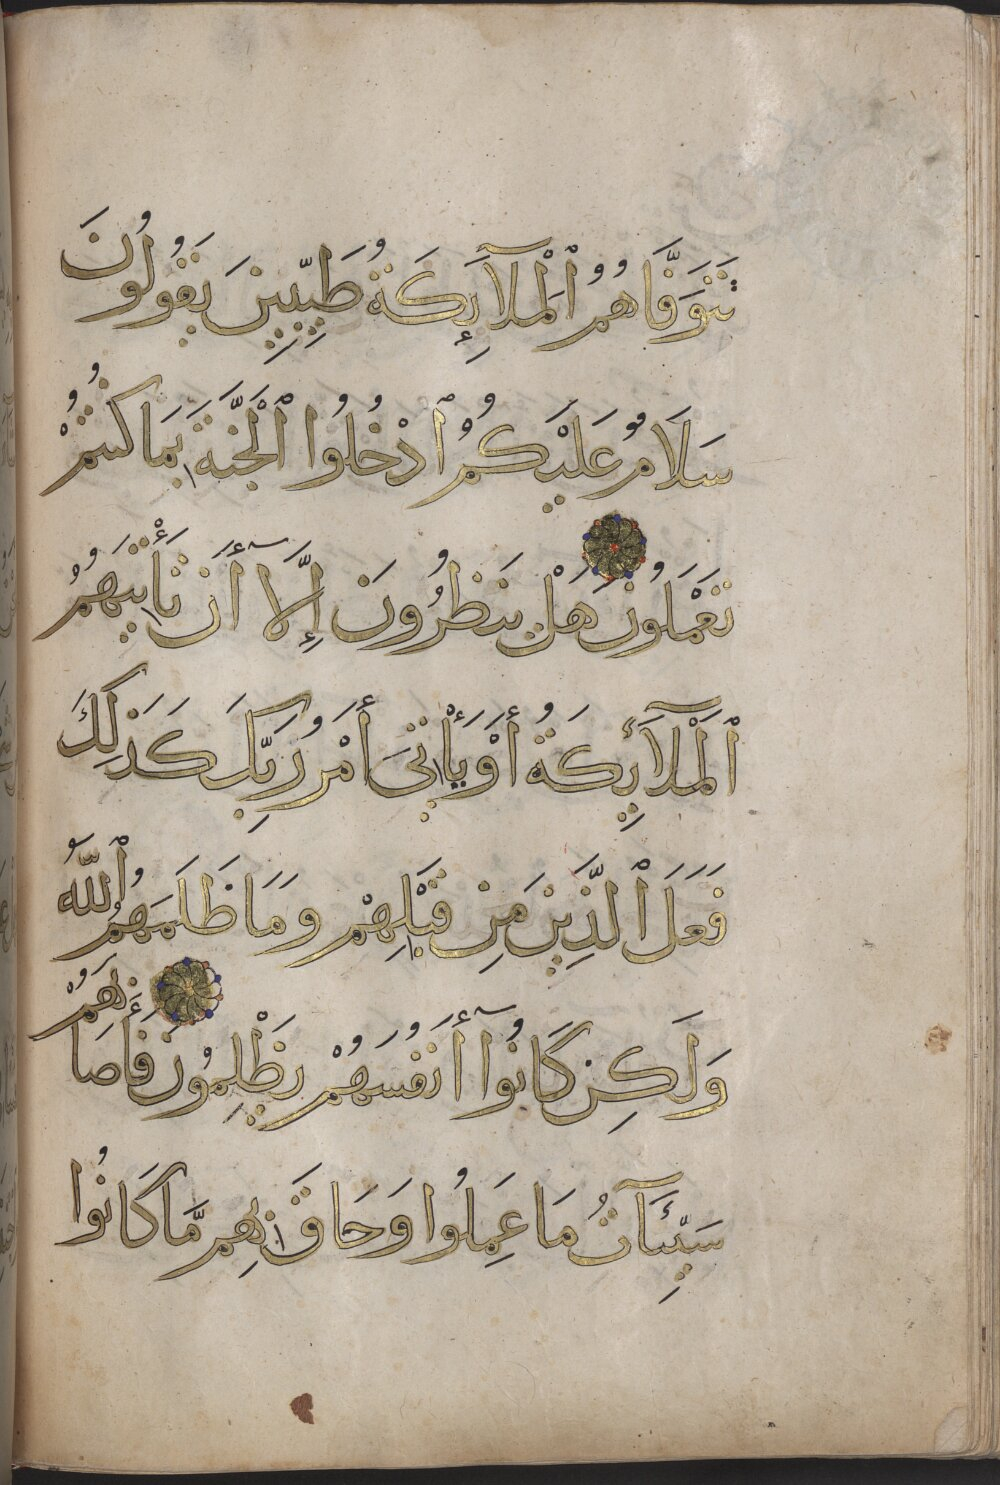 تَتَوَفَّاهُمُ ٱلْمَلَآئِكَةُ طَيِّبِينَ يَقُولُونَ
سَلَامٌ عَلَيْكُمُ ٱدْخُلُوا ٱلْجَنَّةَ بِمَا كُنتُمْ
تَعْمَلُونَ هَلْ يَنظُرُونَ إِلَّآ أَن تَأْتِيَهُمُ
ٱلْمَلَآئِكَةُ أَوْ يَأْتِىَ أَمْرُ رَبِّكَ كَذَلِكَ
فَعَلَ ٱلَّذِينَ مِن قَبْلِهِمْ وَمَا ظَلَمَهُمُ ٱللَّهُ
وَلَكِن كَانُوٓا أَنفُسَهُمْ يَظْلِمُونَ فَأَصَابَهُمْ
سَيِّئَآتُ مَا عَمِلُوا وَحَاقَ بِهِم مَّا كَانُوا